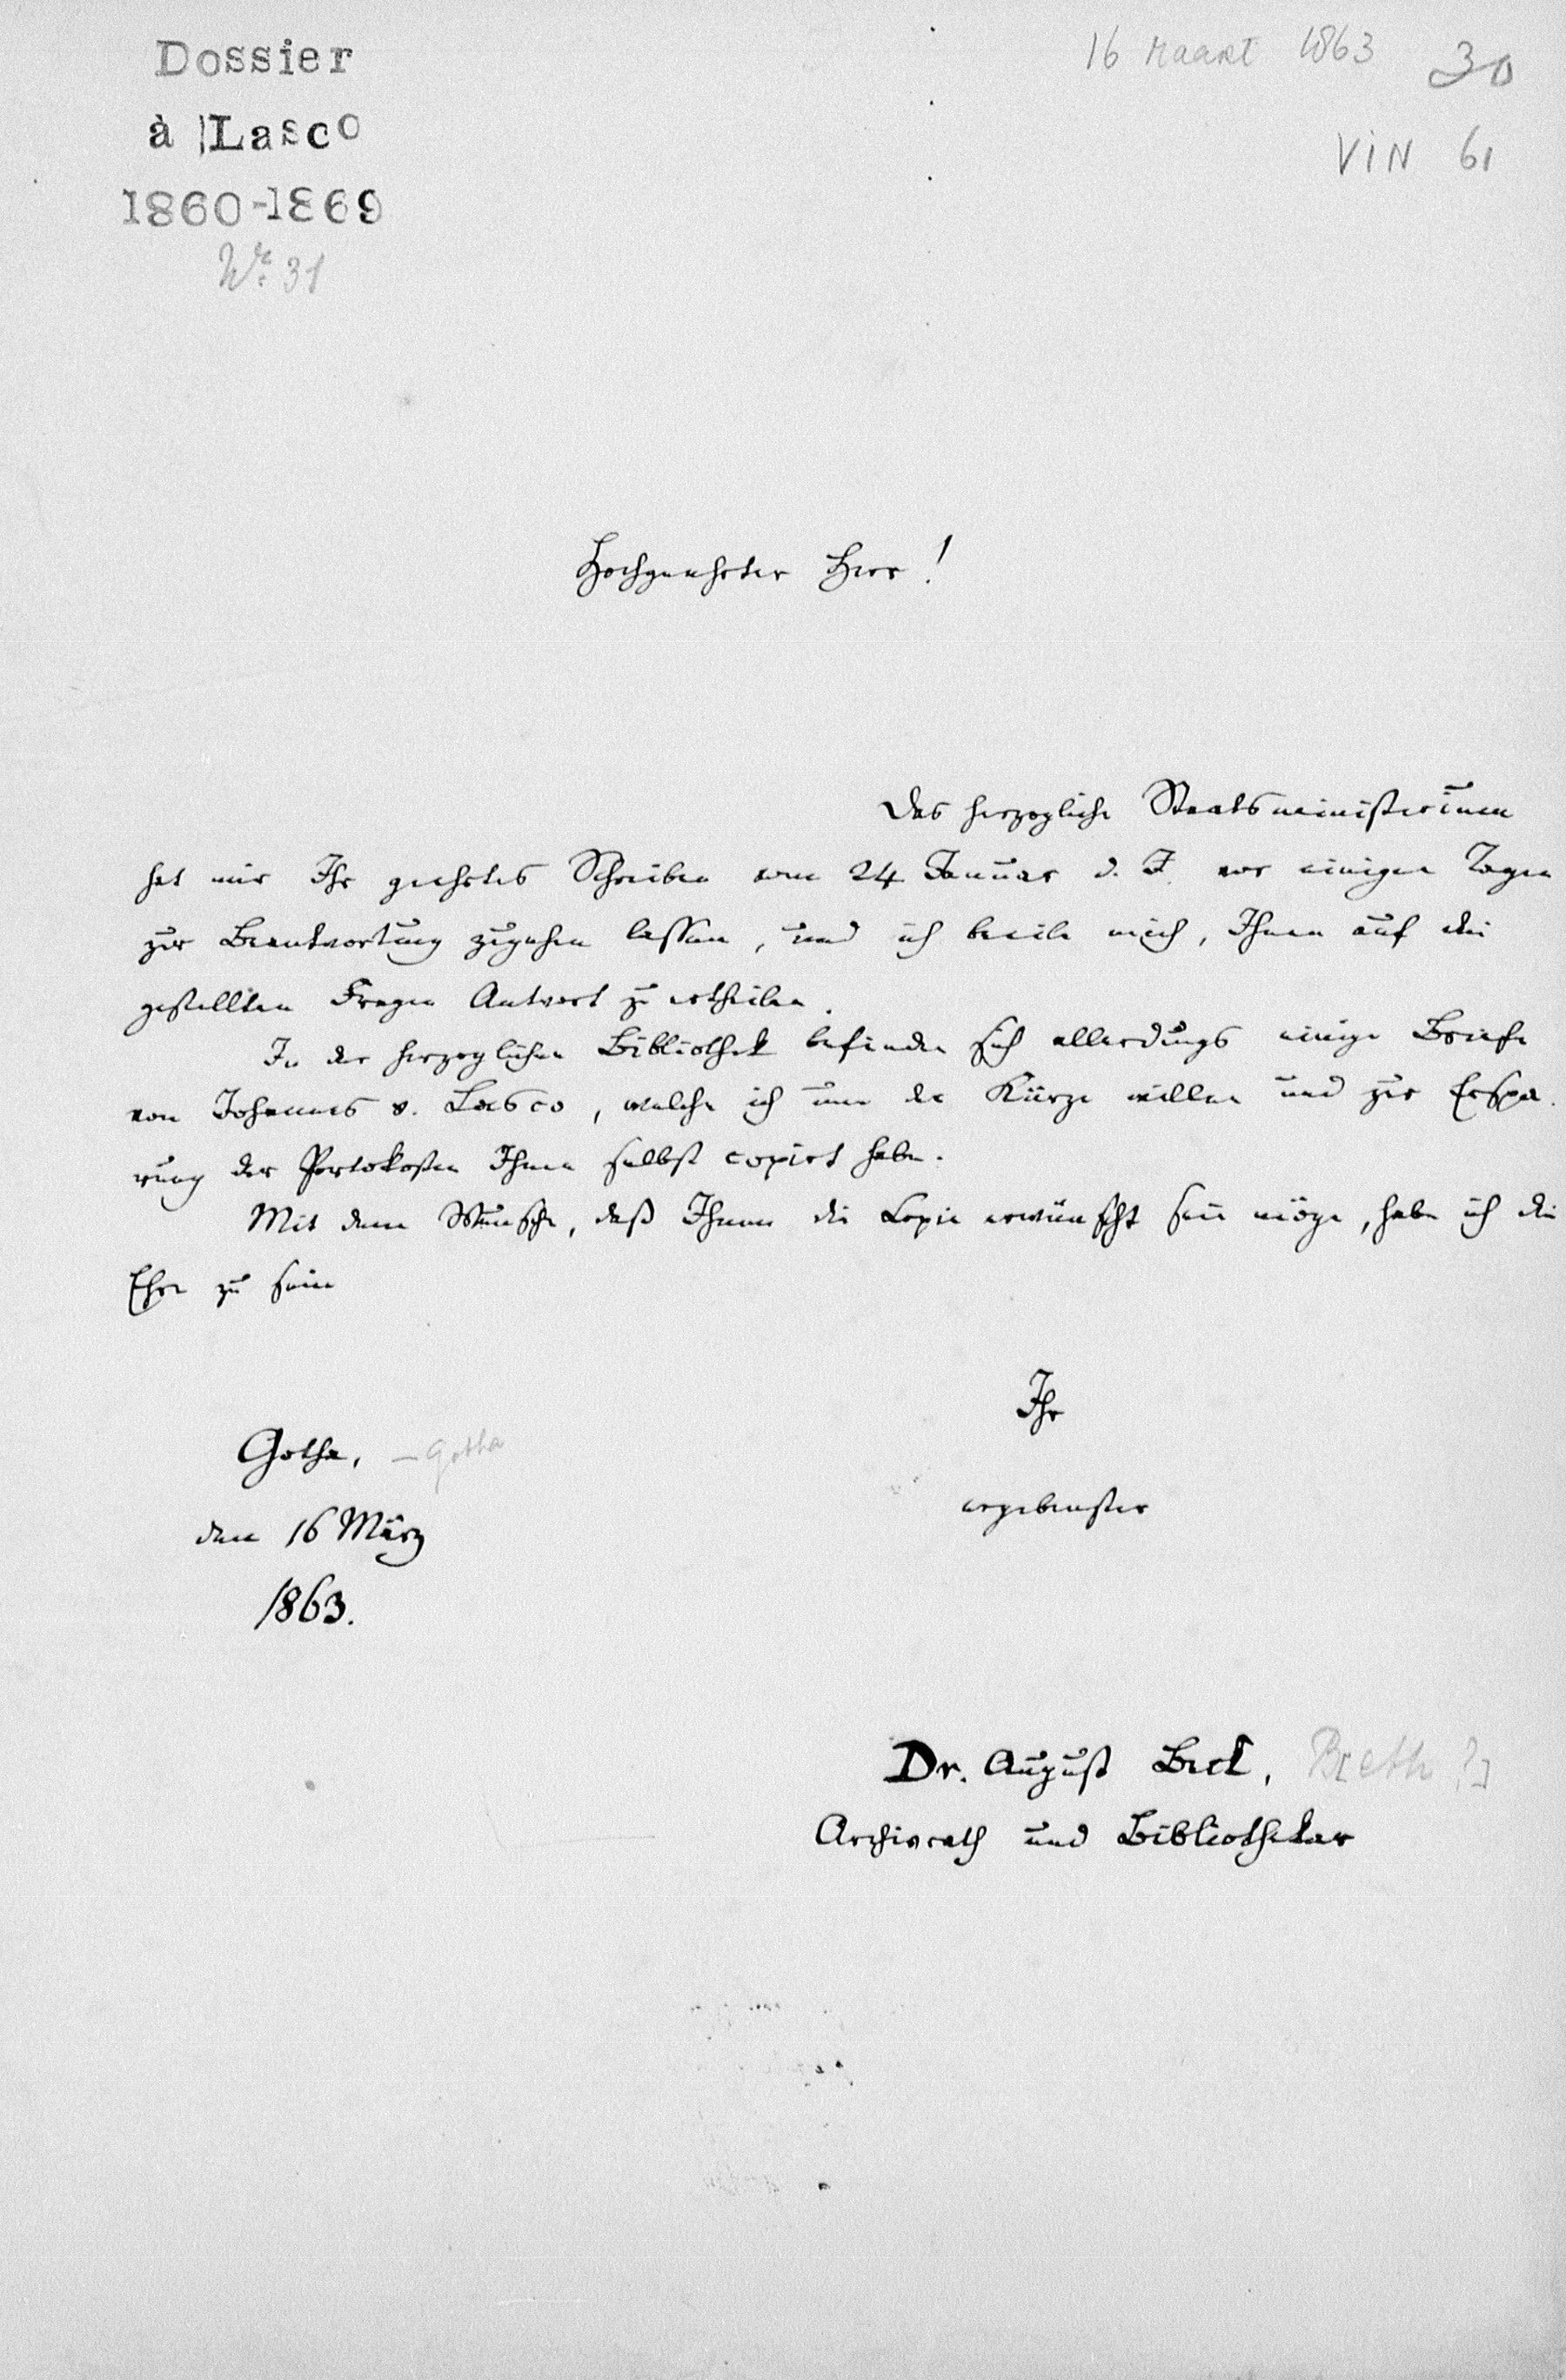 Dossier
à Lasco
1860-1869
No. 31
16 Maart 1863 30
VIN 61
Hochgeehrter Herr!
Das herzogliche Staatsministerium
hat mir Ihr geehrtes Schreiben vom 24 Januar d. J. vor einigen Tagen
zur Beantwortung zugehen lassen, und ich beeile mich, Ihnen auf die
gestellten Fragen Antwort zu ertheilen.
In der herzoglichen Bibliothek befinden sich allerdings einige Briefe
von Johannes v. Lasco, welche ich um der Kürze willen und zur Erspa-
rung der Portokosten Ihnen selbst copirt habe.
Mit dem Wunsche, daß Ihnen die Copie erwünscht sein möge, habe ich die
Ehre zu sein
Ihr
Gotha, - Gotha
ergebenster
den 16 März
1863.
Dr. August Beck, B[eth ?]
Archivrath und Bibliothekar